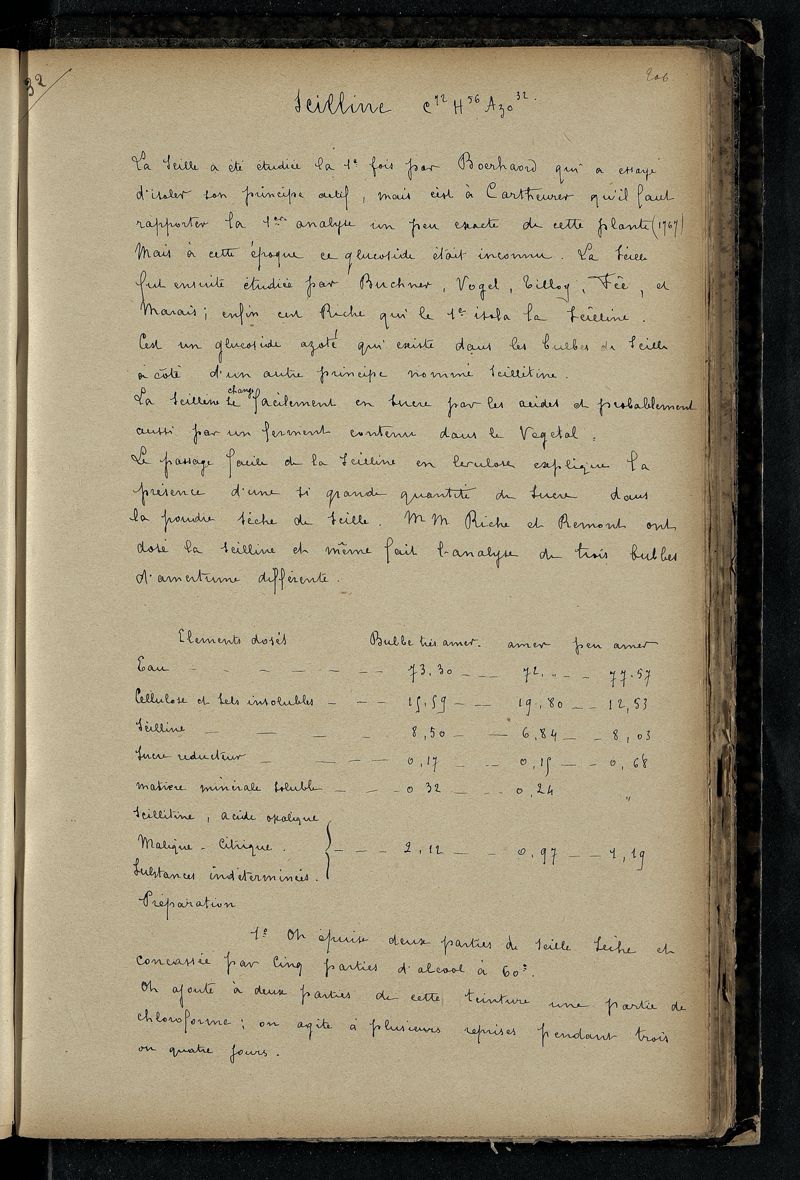 32
206
Scilline C72 H56 AzO32.
La Scille a été étudiée la 1e fois par Boerhaard qui a essayé
d'isoler son principe actif, mais c'est à Cartheurer qu'il faut
rapporter la 1ere analyse un peu exacte de cette plante (1767)
Mais à cette époque ce glucoside était inconnu. La Scille
fut ensuite étudiée par Buchner, Vogel, Tilloy, Fée, et
Marais; enfin cest Riche qui le 1er isola la Scilline.
C'est un glucoside azoté qui existe dans les bulbes de Scille
a côté d'un autre principe nommé Scillitine.
La Scilline se change facilement en sucre par les acides et probablement
aussi par un ferment contenu dans le Vegetal.
Le passage facile de la Scilline en levulose explique la
présence d'une si grande quantité de sucre dans
la poudre sèche de Scille. MM Riche et Remont ont
dosé la Scilline et même fait l'analyse de trois bulbes
d'amertume différente.
Elements dosés Bulbe très amer. amer peu amer
Eau - - - - - - - 73,30 - - - 72,„ - - 77.57
Cellulose et sels insolubles - - - 15,59 - - 19,80 - - 12,53
Scilline - - - - 8,50 - - 6,84 - - 8,03
Sucre reducteur - - - - 0,17 - - 0,15 - - 0,68
matière minérale soluble - - - 0 32 - - 0,24 „
Scillitine, acide oxalique
Malique - Citrique. } - - - 2,12 - - 0,97 - - 1,19
Substances indéterminées.
Préparation
1o On épuise deux parties de Scille sèche et
concassée par cinq parties d'alcool à 60o.
On ajoute à deux parties de cette teinture une partie de
chloroforme; on agite à plusieurs reprises pendant trois
ou quatre jours.